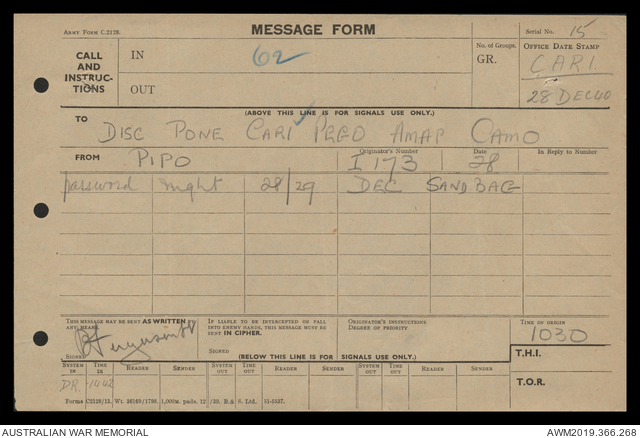 ARMY FORM C.2128.
MESSAGE FORM
Serial No. 15
CALL AND INSTRUCTIONS
IN 62
OUT
No. of Groups.
GR.
OFFICE DATE STAMP
CARI
28 DEC 40
(ABOVE THIS LINE IS FOR SIGNALS USE ONLY.)
TO DISC PONE CARI PEGO AMAP CAMO
FROM PIPO
Originator's Number I 173
Date 28
In Reply to Number
password night 28/29 DEC SANDBAG
THIS MESSAGE MAY BE SENT AS WRITTEN BY ANY MEANS.
SIGNED
IF LIABLE TO BE INTERCEPTED OR FALL INTO ENEMY HANDS, THIS MESSAGE MUST BE SENT IN CIPHER.
SIGNED
ORIGINATOR'S INSTRUCTIONS
DEGREE OF PRIORITY
TIME OF ORIGIN
1030
(BELOW THIS LINE IS FOR SIGNALS USE ONLY.)
T.H.I.
T.O.R.
SYSTEM IN TIME IN READER SENDER SYSTEM OUT TIME OUT READER SENDER SYSTEM OUT TIME OUT READER SENDER
DR. 1042
Forms C2128/13. Wt. 36169/1798. 1,000m. pads. 12/39. B.& S. Ltd. 51-5537.
AUSTRALIAN WAR MEMORIAL
AWM2019.366.268